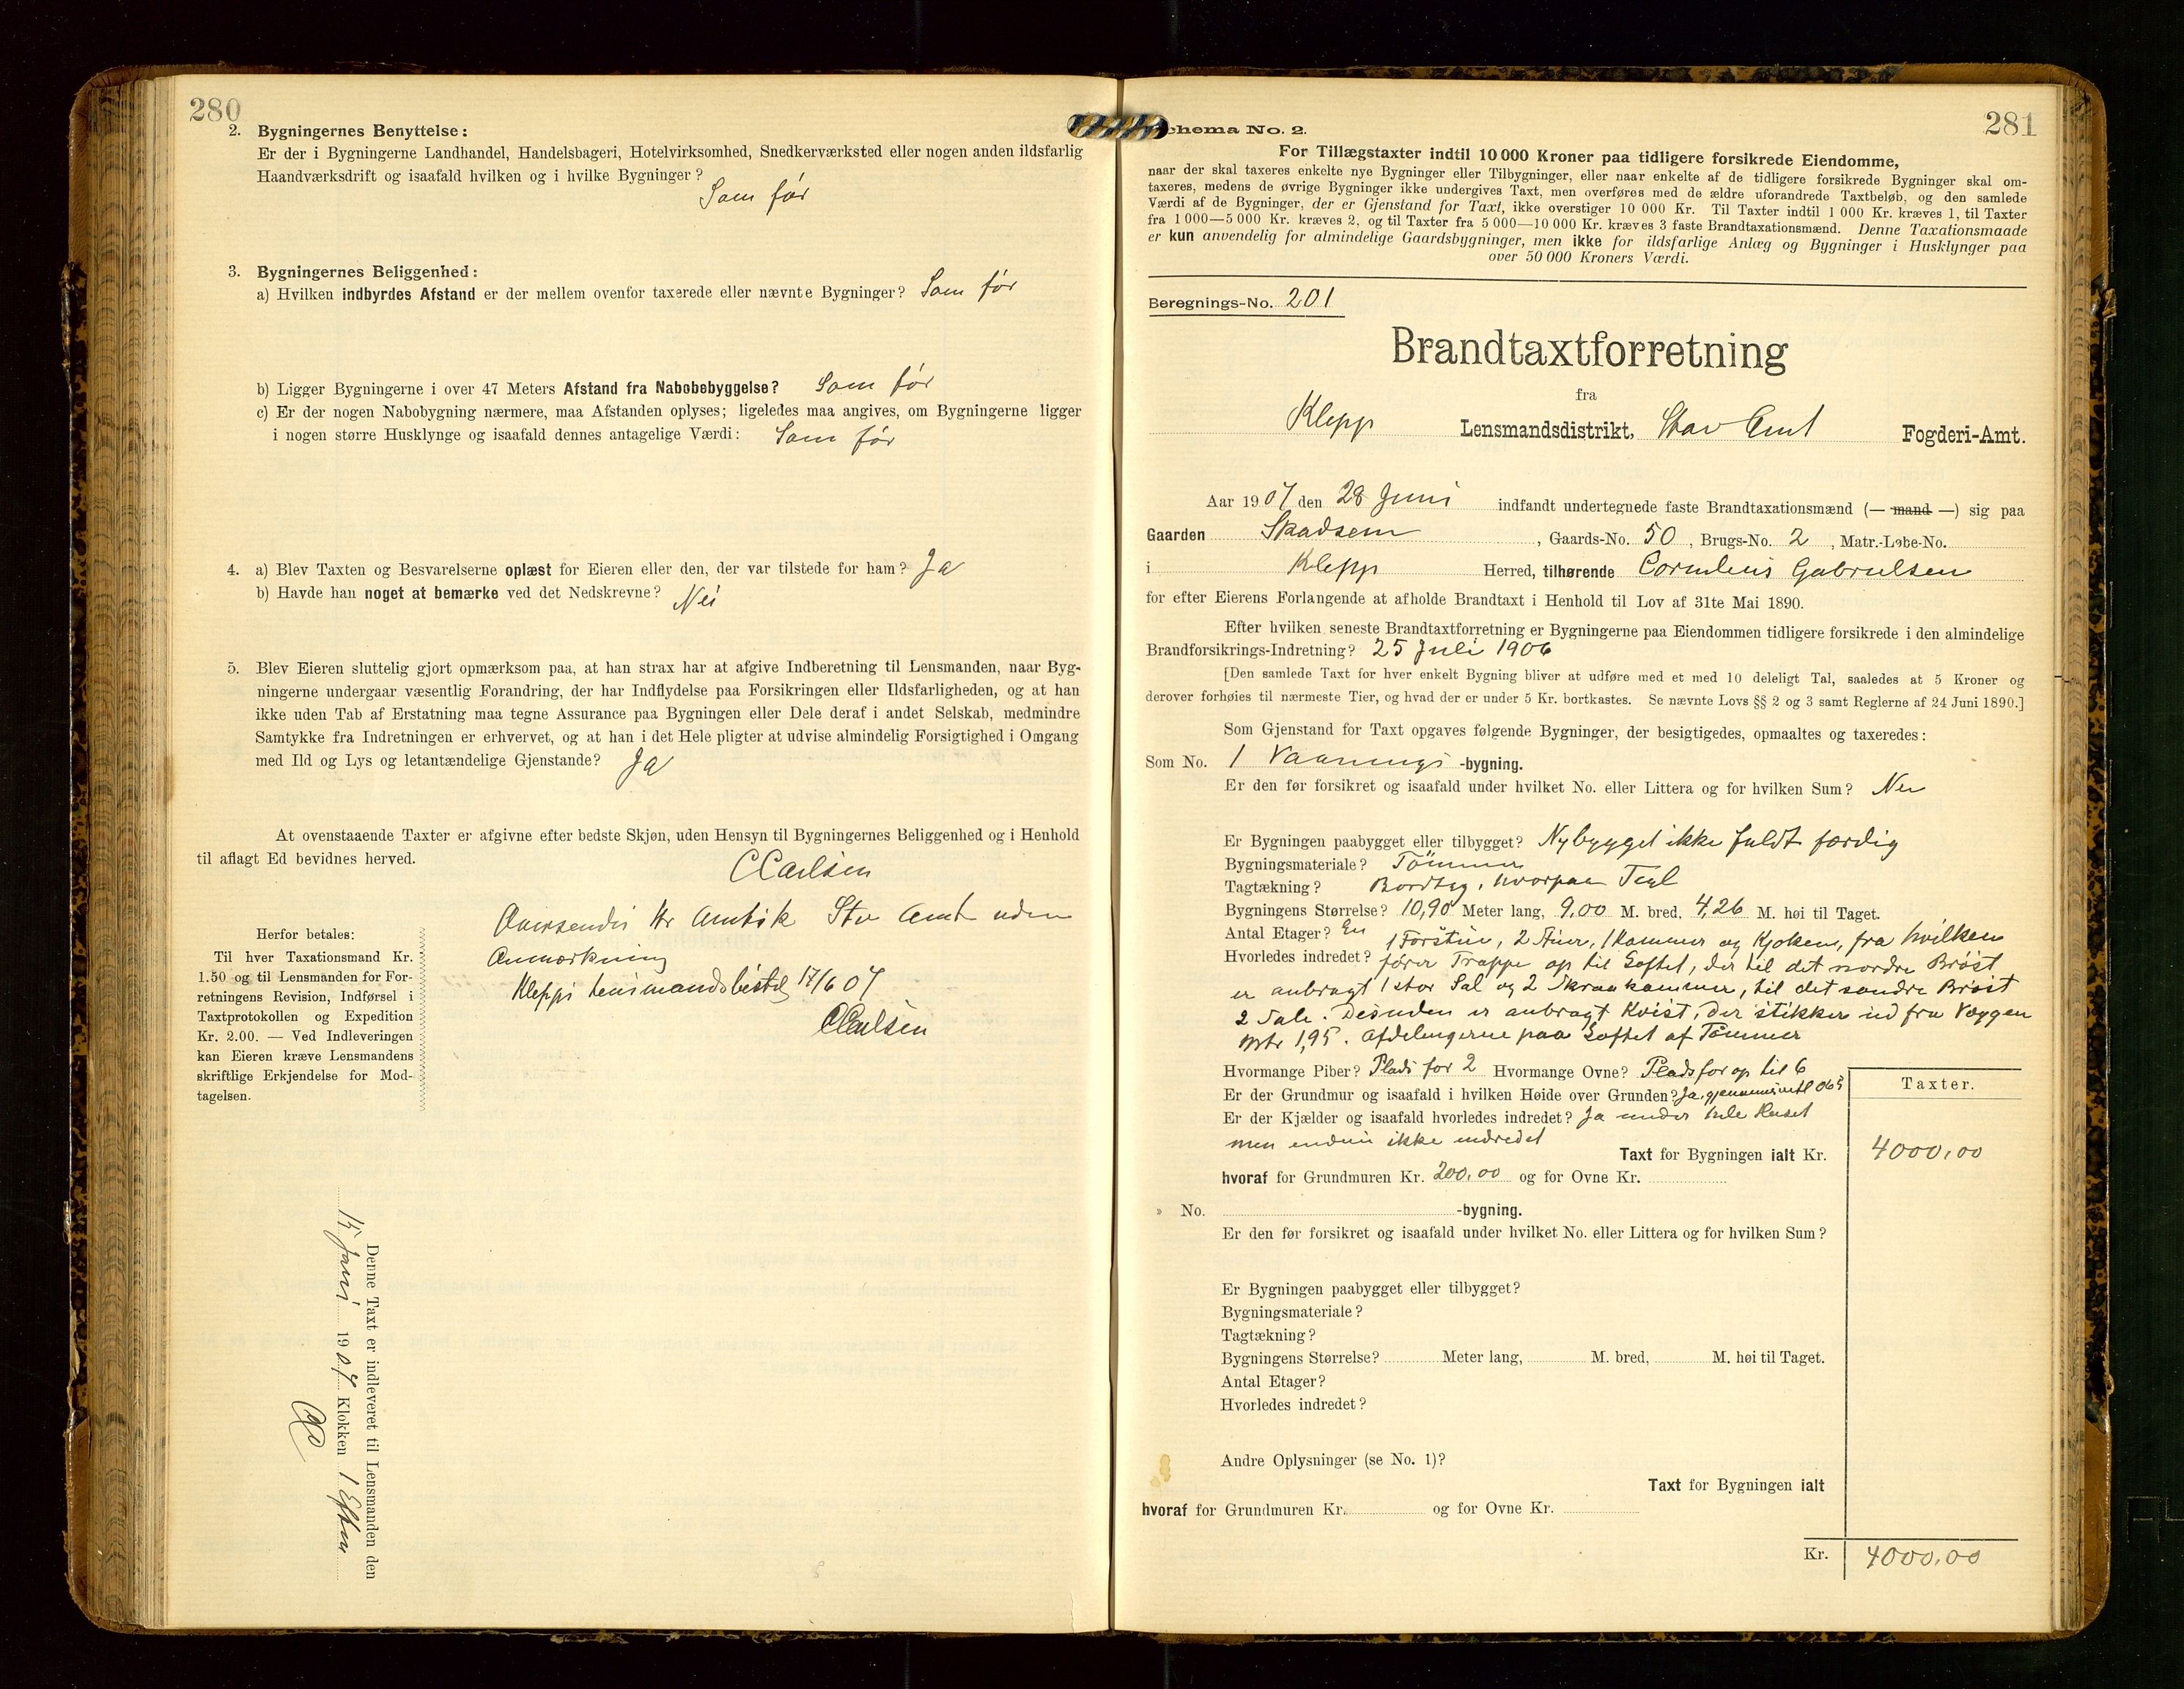 280
2. Bygningernes Benyttelse:
Er der i Bygningerne Landhandel, Handelsbageri, Hotelvirksomhed, Snedkerværksted eller nogen anden ildsfarlig
Haandværksdrift og isaafald hvilken og i hvilke Bygninger?
Som før
3. Bygningernes Beliggenhed:
a) Hvilken indbyrdes Afstand er der mellem ovenfor taxerede eller nævnte Bygninger? Som før
b) Ligger Bygningerne i over 47 Meters Afstand fra Nabobebyggelse? Som før
c) Er der nogen Nabobygning nærmere, maa Afstanden oplyses; ligeledes maa angives, om Bygningerne ligger
i nogen større Husklynge og isaafald dennes antagelige Værdi: Som før
4. a) Blev Taxten og Besvarelserne oplæst for Eieren eller den, der var tilstede for ham? Ja
b) Havde han noget at bemærke ved det Nedskrevne? Nei
5. Blev Eieren sluttelig gjort opmærksom paa, at han strax har at afgive Indberetning til Lensmanden, naar Byg-
ningerne undergaar væsentlig Forandring, der har Indflydelse paa Forsikringen eller Ildsfarligheden, og at han
ikke uden Tab af Erstatning maa tegne Assurance paa Bygningen eller Dele deraf i andet Selskab, medmindre
Samtykke fra Indretningen er erhvervet, og at han i det Hele pligter at udvise almindelig Forsigtighed i Omgang
med Ild og Lys og letantændelige Gjenstande? Ja
At ovenstaaende Taxter er afgivne efter bedste Skjøn, uden Hensyn til Bygningernes Beliggenhed og i Henhold
til aflagt Ed bevidnes herved.
CCarlsen
Oversendes Hr Amtsk Stv Amt uden
Anmærkning
Klepps Lensmandsbestil 17/6 07
CCarlsen
Herfor betales:
Til hver Taxationsmand Kr.
1.50 og til Lensmanden for For-
retningens Revision, Indførsel i
Taxtprotokollen og Expedition
Kr. 2.00. — Ved Indleveringen
kan Eieren kræve Lensmandens
skriftlige Erkjendelse for Mod-
tagelsen.
Denne Taxt er indleveret til Lensmanden den
15 Juni 1907 Klokken 1 Efterm
281
chema No. 2.
For Tillægstaxter indtil 10 000 Kroner paa tidligere forsikrede Eiendomme,
naar der skal taxeres enkelte nye Bygninger eller Tilbygninger, eller naar enkelte af de tidligere forsikrede Bygninger skal om-
taxeres, medens de øvrige Bygninger ikke undergives Taxt, men overføres med de ældre uforandrede Taxtbeløb, og den samlede
Værdi af de Bygninger, der er Gjenstand for Taxt, ikke overstiger 10 000 Kr. Til Taxter indtil 1 000 Kr. kræves 1, til Taxter
fra 1 000—5 000 Kr. kræves 2, og til Taxter fra 5 000—10 000 Kr. kræves 3 faste Brandtaxationsmænd. Denne Taxationsmaade
er kun anvendelig for almindelige Gaardsbygninger, men ikke for ildsfarlige Anlæg og Bygninger i Husklynger paa
over 50 000 Kroners Værdi.
Beregnings-No. 201
Brandtaxtforretning
fra
Klepp Lensmandsdistrikt, Stav Amt Fogderi-Amt.
Aar 1907 den 28 Juni indfandt undertegnede faste Brandtaxationsmænd (— mand —) sig paa
Gaarden Skadsem, Gaards-No. 50, Brugs-No. 2, Matr.-Løbe-No.
i Klepp Herred, tilhørende Cornelius Gabrielsen
for efter Eierens Forlangende at afholde Brandtaxt i Henhold til Lov af 31te Mai 1890.
Efter hvilken seneste Brandtaxtforretning er Bygningerne paa Eiendommen tidligere forsikrede i den almindelige
Brandforsikrings-Indretning? 25 Juli 1906
[Den samlede Taxt for hver enkelt Bygning bliver at udføre med et med 10 deleligt Tal, saaledes at 5 Kroner og
derover forhøies til nærmeste Tier, og hvad der er under 5 Kr. bortkastes. Se nævnte Lovs §§ 2 og 3 samt Reglerne af 24 Juni 1890.]
Som Gjenstand for Taxt opgaves følgende Bygninger, der besigtigedes, opmaaltes og taxeredes:
Som No. 1 Vaanings -bygning.
Er den før forsikret og isaafald under hvilket No. eller Littera og for hvilken Sum? Nei
Er Bygningen paabygget eller tilbygget? Nybygget ikke fuldt færdig
Bygningsmateriale? Tømmer
Tagtækning? Bordtag, hvorpaa Tegl
Bygningens Størrelse? 10,90 Meter lang, 9,00 M. bred, 4,26 M. høi til Taget.
Antal Etager? En
Hvorledes indredet? 1 Forstue, 2 Stuer, 1 Kammer og Kjøken, fra hvilken
fører Trappe op til Loftet, der til det nordre Brøst
er anbragt 1 stor Sal og 2 Skraakammer, til det søndre Brøst
2 Sale. Desuden er anbragt Kvist, der stikker ud fra Væggen
Mtr 1,95. Afdelingerne paa Loftet af Tømmer
Hvormange Piber? Plads for 2 Hvormange Ovne? Plads for op til 6
Er der Grundmur og isaafald i hvilken Høide over Grunden? Ja, gjennemsnitl 065
Er der Kjælder og isaafald hvorledes indredet? Ja under hele Huset
men endnu ikke indredet
Taxter.
Taxt for Bygningen ialt Kr. 4000,00
hvoraf for Grundmuren Kr. 200,00 og for Ovne Kr.
» No. -bygning.
Er den før forsikret og isaafald under hvilket No. eller Littera og for hvilken Sum?
Er Bygningen paabygget eller tilbygget?
Bygningsmateriale?
Tagtækning?
Bygningens Størrelse? Meter lang, M. bred, M. høi til Taget.
Antal Etager?
Hvorledes indredet?
Andre Oplysninger (se No. 1)?
Taxt for Bygningen ialt
hvoraf for Grundmuren Kr. og for Ovne Kr.
Kr. 4000,00